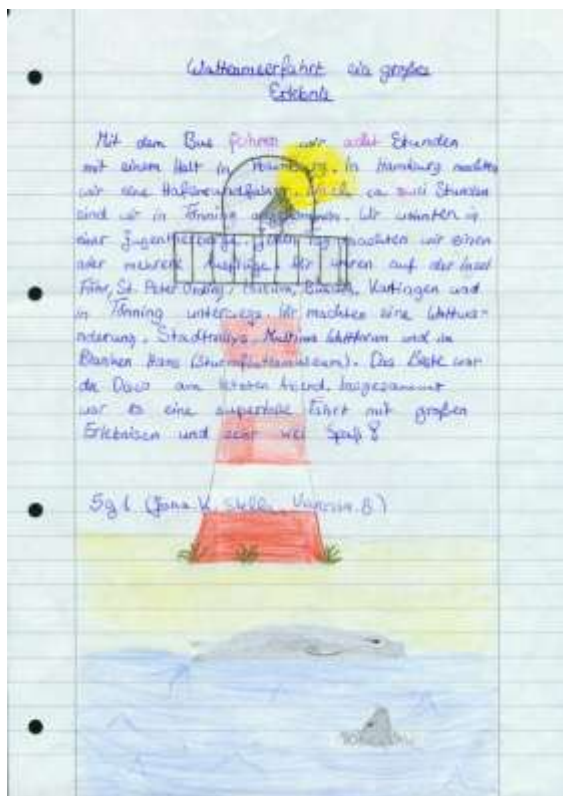 Wattenmeerfahrt ein großes
Erlebnis
Mit dem Bus fuhren wir acht Stunden
mit einem Halt in Hamburg. In Hamburg machten
wir eine Hafenrundfahrt. Nach ca zwei Stunden
sind wir in Tönning angekommen. Wir wohnten in
einer Jugendherberge. Jeden Tag machten wir einen
oder mehrere Ausflüge. Wir waren auf der Insel
Föhr, St. Peter Ording, Husum, Büsum, und
in Tönning unterwegs. Wir machten eine Wattwa-
nderung, Stadtrallye, Multimar Wattforum und im
Blanken Hans (Sturmflutenmuseum). Das Beste war
die Disco am letzten Abend. Insgesamt
war es eine supertolle Fahrt mit großen
Erlebnisen und sehr viel Spaß!
5g1 (Jana K. Stella, B.)